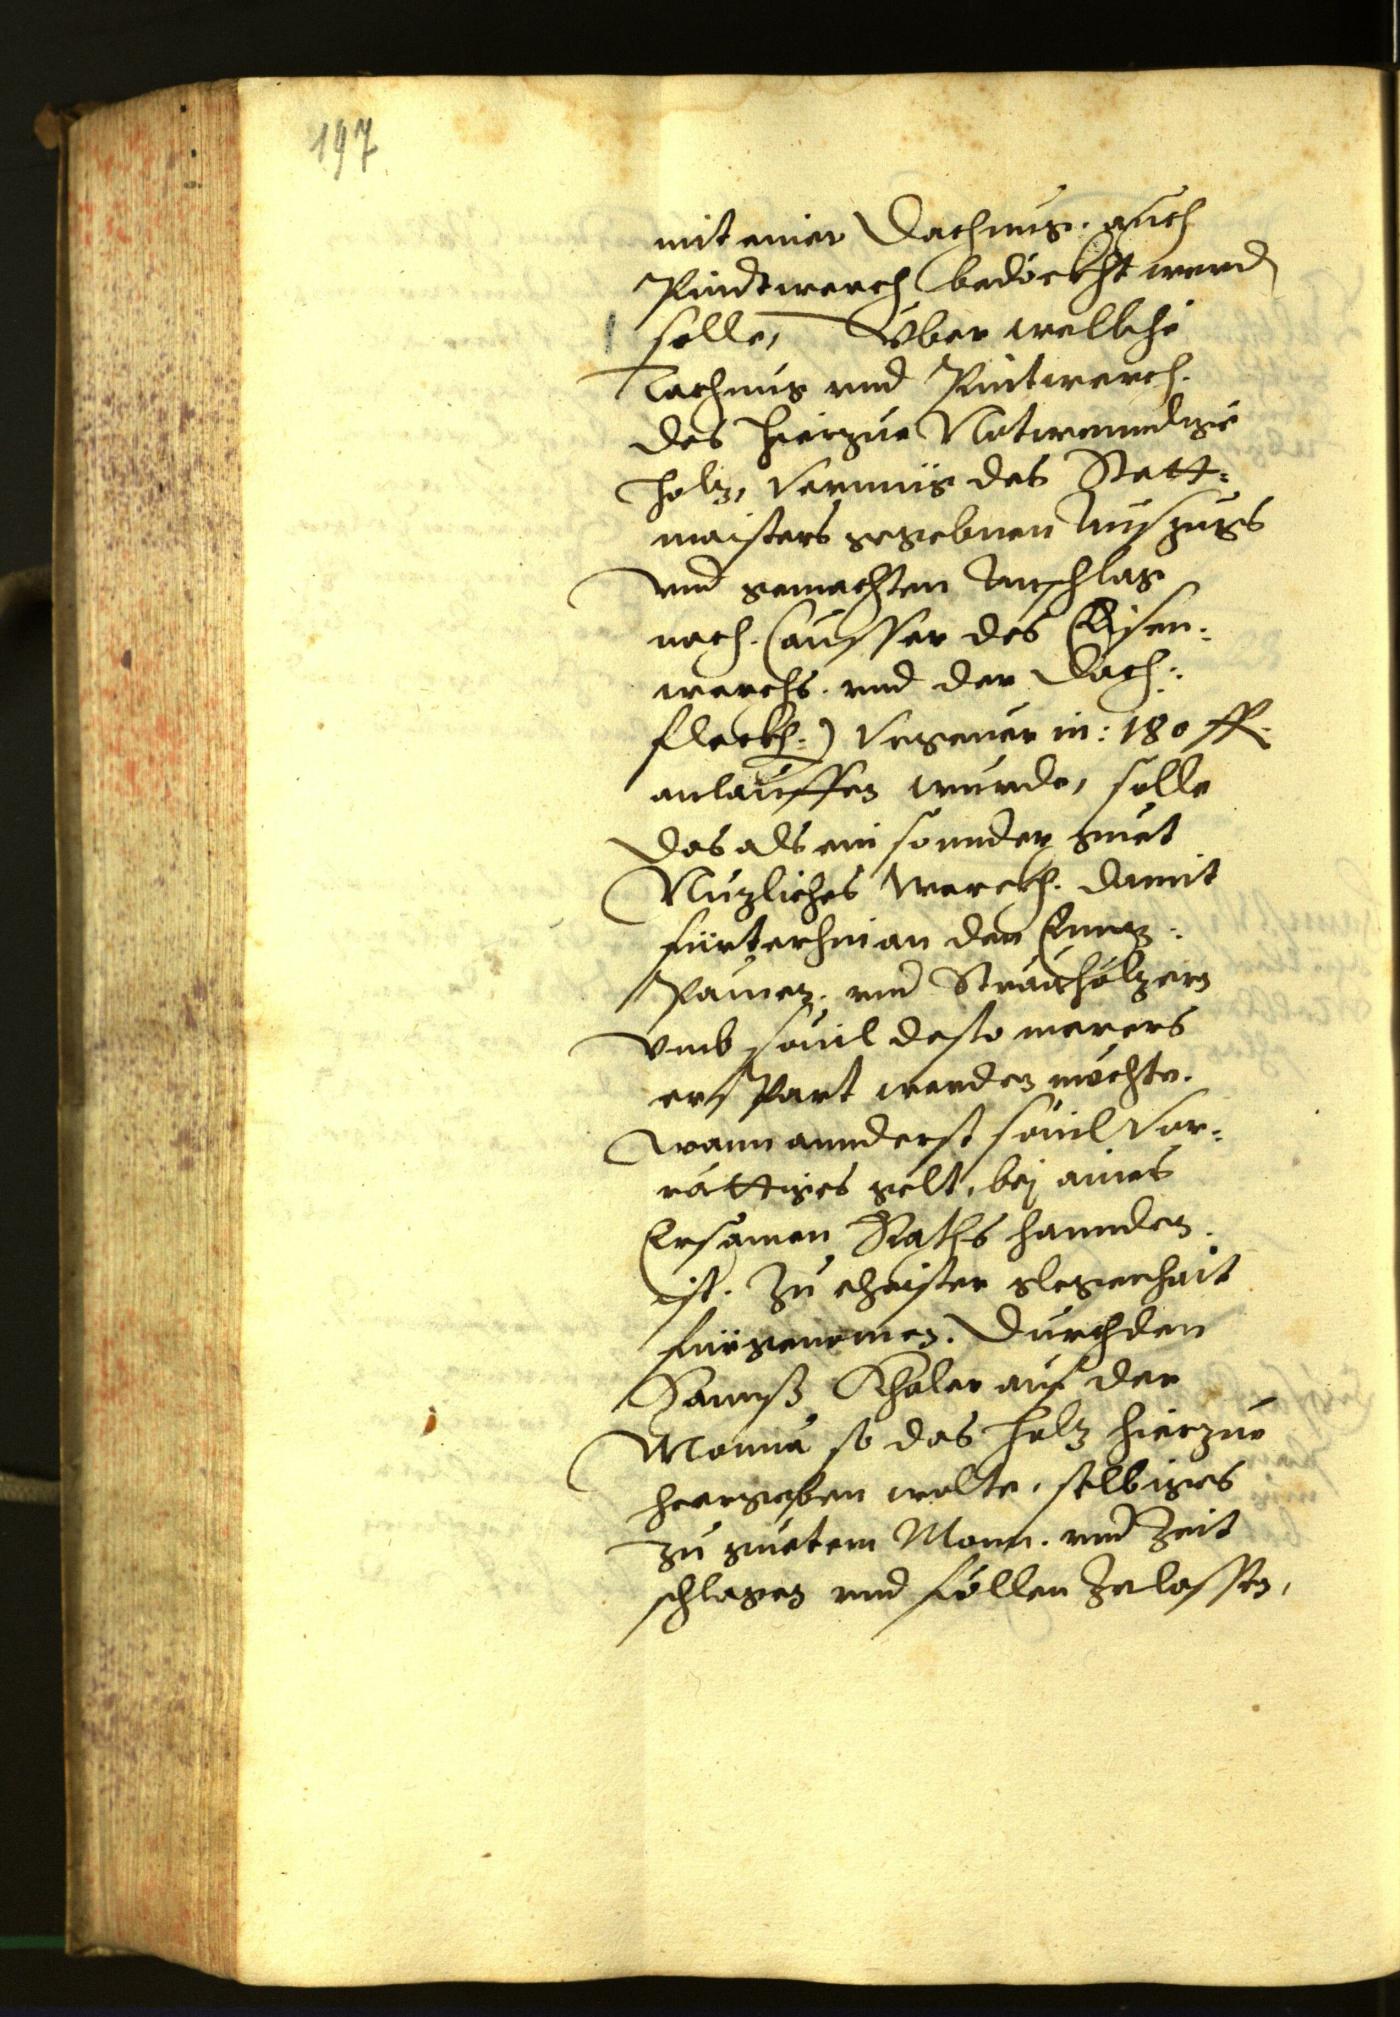 197
mit einer Dachung. auch
Pindtwerch bedöckht werd
solle, Über welliche
Tachung vnd Pintwerch.
das hierzue Notwenndige
holz, vermüg des Statt-
maisters gegebnen Auszugs
vnd gemachten Anschlag
nach. (ausser des Eisen-
werchs. vnd der Dach-
fleckh:) Vngeuer in: 180 fl.
anlauffen wurde, solle
das als ein sonnder guet
Nuzliches Werckh. damit
fürterhin an den Ennz-
Pämen. vnd Strauhölzern
vmb souil desto merers
erspart werden möchte.
wann annderst souil Vor-
rättiges gelt, bej aines
Ersamen Raths hannden
ist. Zu ehister glegenhait
fürgenomen. Durch den
Hannß Khaler auf der
Mannä so das holz hierzue
heergeben wolte, selbiges
zu guetem Mann. vnd Zeit
schlagen vnd föllen Zelassen,